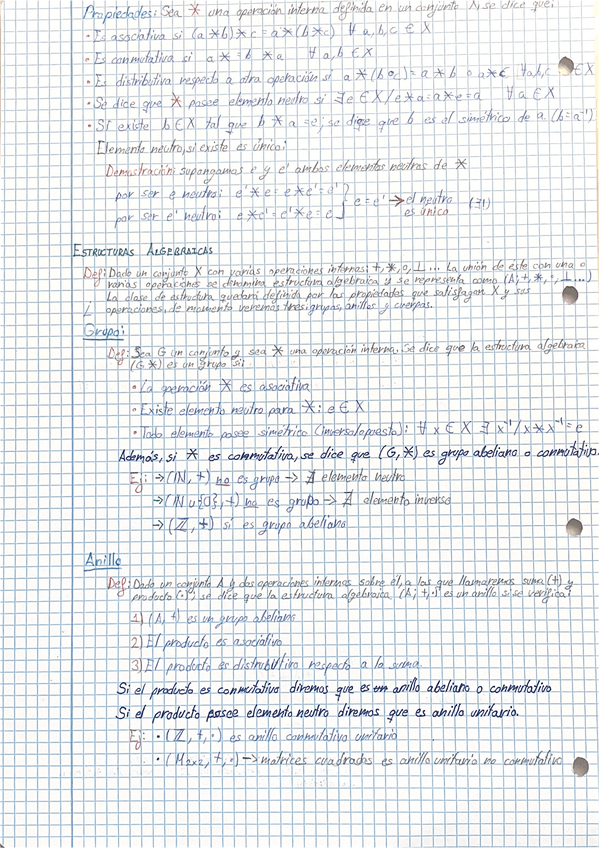 Propiedades: Sea * una operación interna definida en un conjunto X, se dice que:
· Es asociativa si (a * b) * c = a * (b * c) ∀ a, b, c ∈ X
· Es conmutativa si a * b = b * a ∀ a, b ∈ X
· Es distributiva respecto a otra operación si a * (b o c) = a * b o a * c ∀ a, b, c ∈ X
· Se dice que * posee elemento neutro si ∃ e ∈ X / e * a = a * e = a ∀ a ∈ X
· Si existe b ∈ X tal que b * a = e, se dice que b es el simétrico de a (b = a⁻¹)
Elemento neutro, si existe es único:
Demostración: supongamos e y e' ambos elementos neutros de *
por ser e neutro: e' * e = e * e' = e'
por ser e' neutro: e * e' = e' * e = e } e = e' → el neutro es único (∃!)
ESTRUCTURAS ALGEBRAICAS
Def: Dado un conjunto X con varias operaciones internas: +, *, o, ⊥ ... La unión de éste con una o
varias operaciones se denomina estructura algebraica y se representa como (A; +, *, ·, ⊥ ...)
La clase de estructura quedará definida por las propiedades que satisfagan X y sus
operaciones, de momento veremos tres: grupos, anillos y cuerpos.
Grupo:
Def: Sea G un conjunto y sea * una operación interna. Se dice que la estructura algebraica
(G, *) es un grupo si:
· La operación * es asociativa
· Existe elemento neutro para *: e ∈ X
· Todo elemento posee simétrico (inverso/opuesto): ∀ x ∈ X ∃ x⁻¹ / x * x⁻¹ = e
Además, si * es conmutativa, se dice que (G, *) es grupo abeliano o conmutativo.
Ej: → (ℕ, +) no es grupo → ∄ elemento neutro
→ (ℕ ∪ {0}, +) no es grupo → ∄ elemento inverso
→ (ℤ, +) si es grupo abeliano
Anillo
Def: Dado un conjunto A y dos operaciones internas sobre él, a las que llamaremos suma (+) y
producto (·), se dice que la estructura algebraica (A; +, ·) es un anillo si se verifica:
1) (A, +) es un grupo abeliano
2) El producto es asociativo
3) El producto es distributivo respecto a la suma.
Si el producto es conmutativo diremos que es un anillo abeliano o conmutativo
Si el producto posee elemento neutro diremos que es anillo unitario.
Ej: · (ℤ, +, ·) es anillo conmutativo unitario
· (M₂ₓ₂, +, ·) → matrices cuadradas es anillo unitario no conmutativo